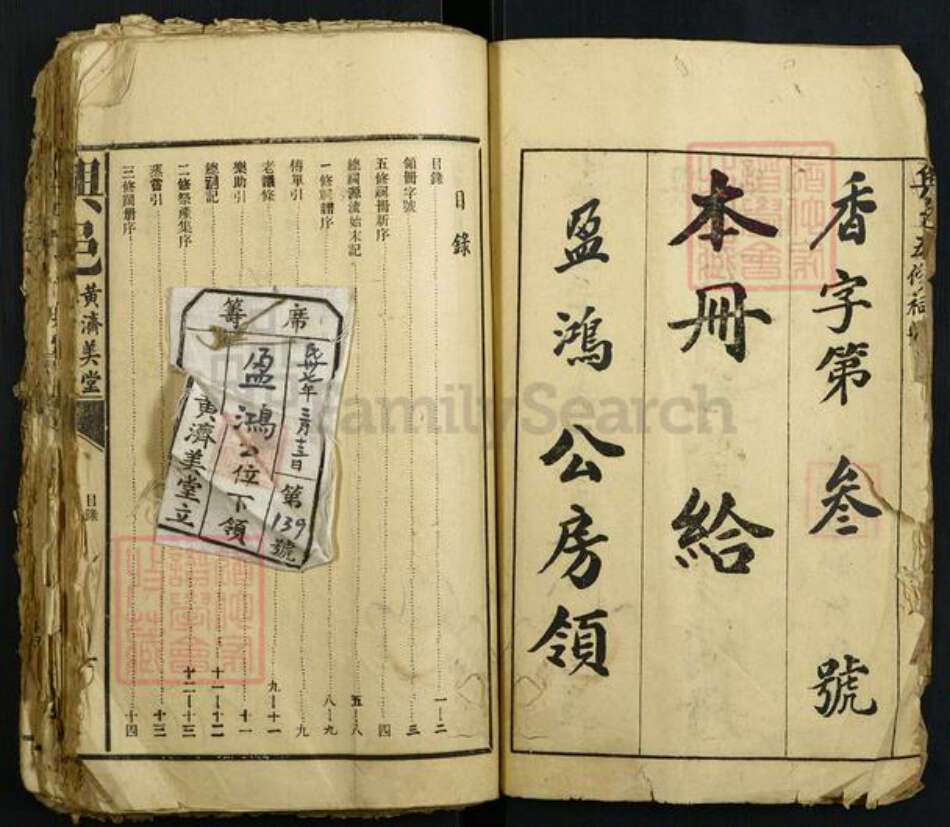 香字第叁號
本冊給
盈鴻公房領
目錄
目錄 一－二
領冊字號 三
五修祠冊新序 四
總祠源流始末記 五－八
一修祠譜序 八－九
傳單引 九
老議條 九－十一
樂助引 十一
總祠記 十一－十二
二修祭產集序 十二－十三
蒸嘗引 十三
三修祠册序 十四
籌席
民卅七年三月十三日第139號
盈鴻公位下領
黃濟美堂立
黃濟美堂
目錄
FamilySearch